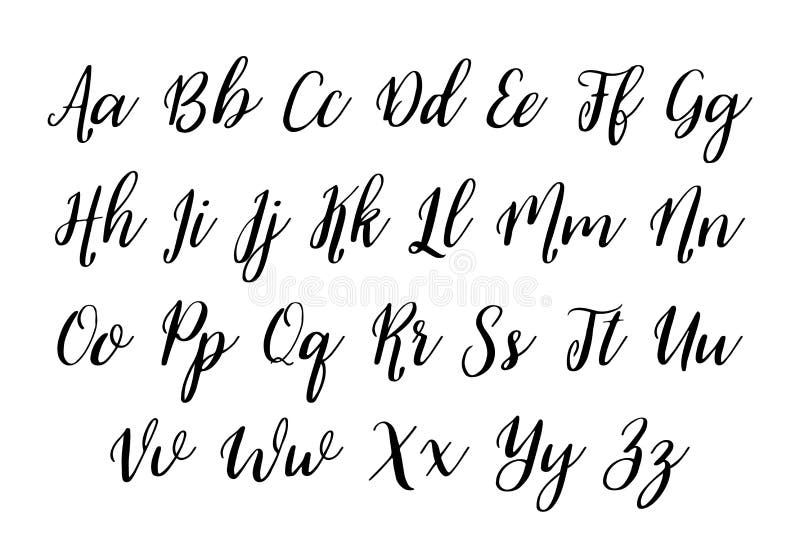 Aa Bb Cc Dd Ee Ff Gg
Hh Ii Jj Kk Ll Mm Nn
dreamstime
Oo Pp Qq Rr Ss Tt Uu
Vv Ww Xx Yy Zz